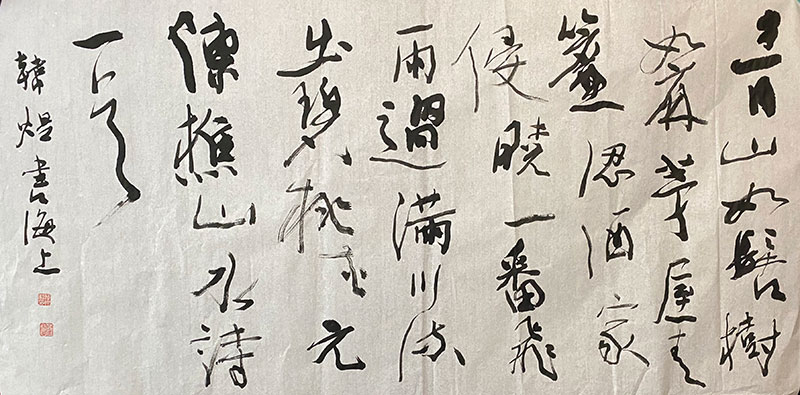 青山如髻樹
如麻茅屋青
簾認酒家
侵曉一番飛
雨過滿川流
出碧桃花元
陳樵山水詩
一首
韓煜書海上